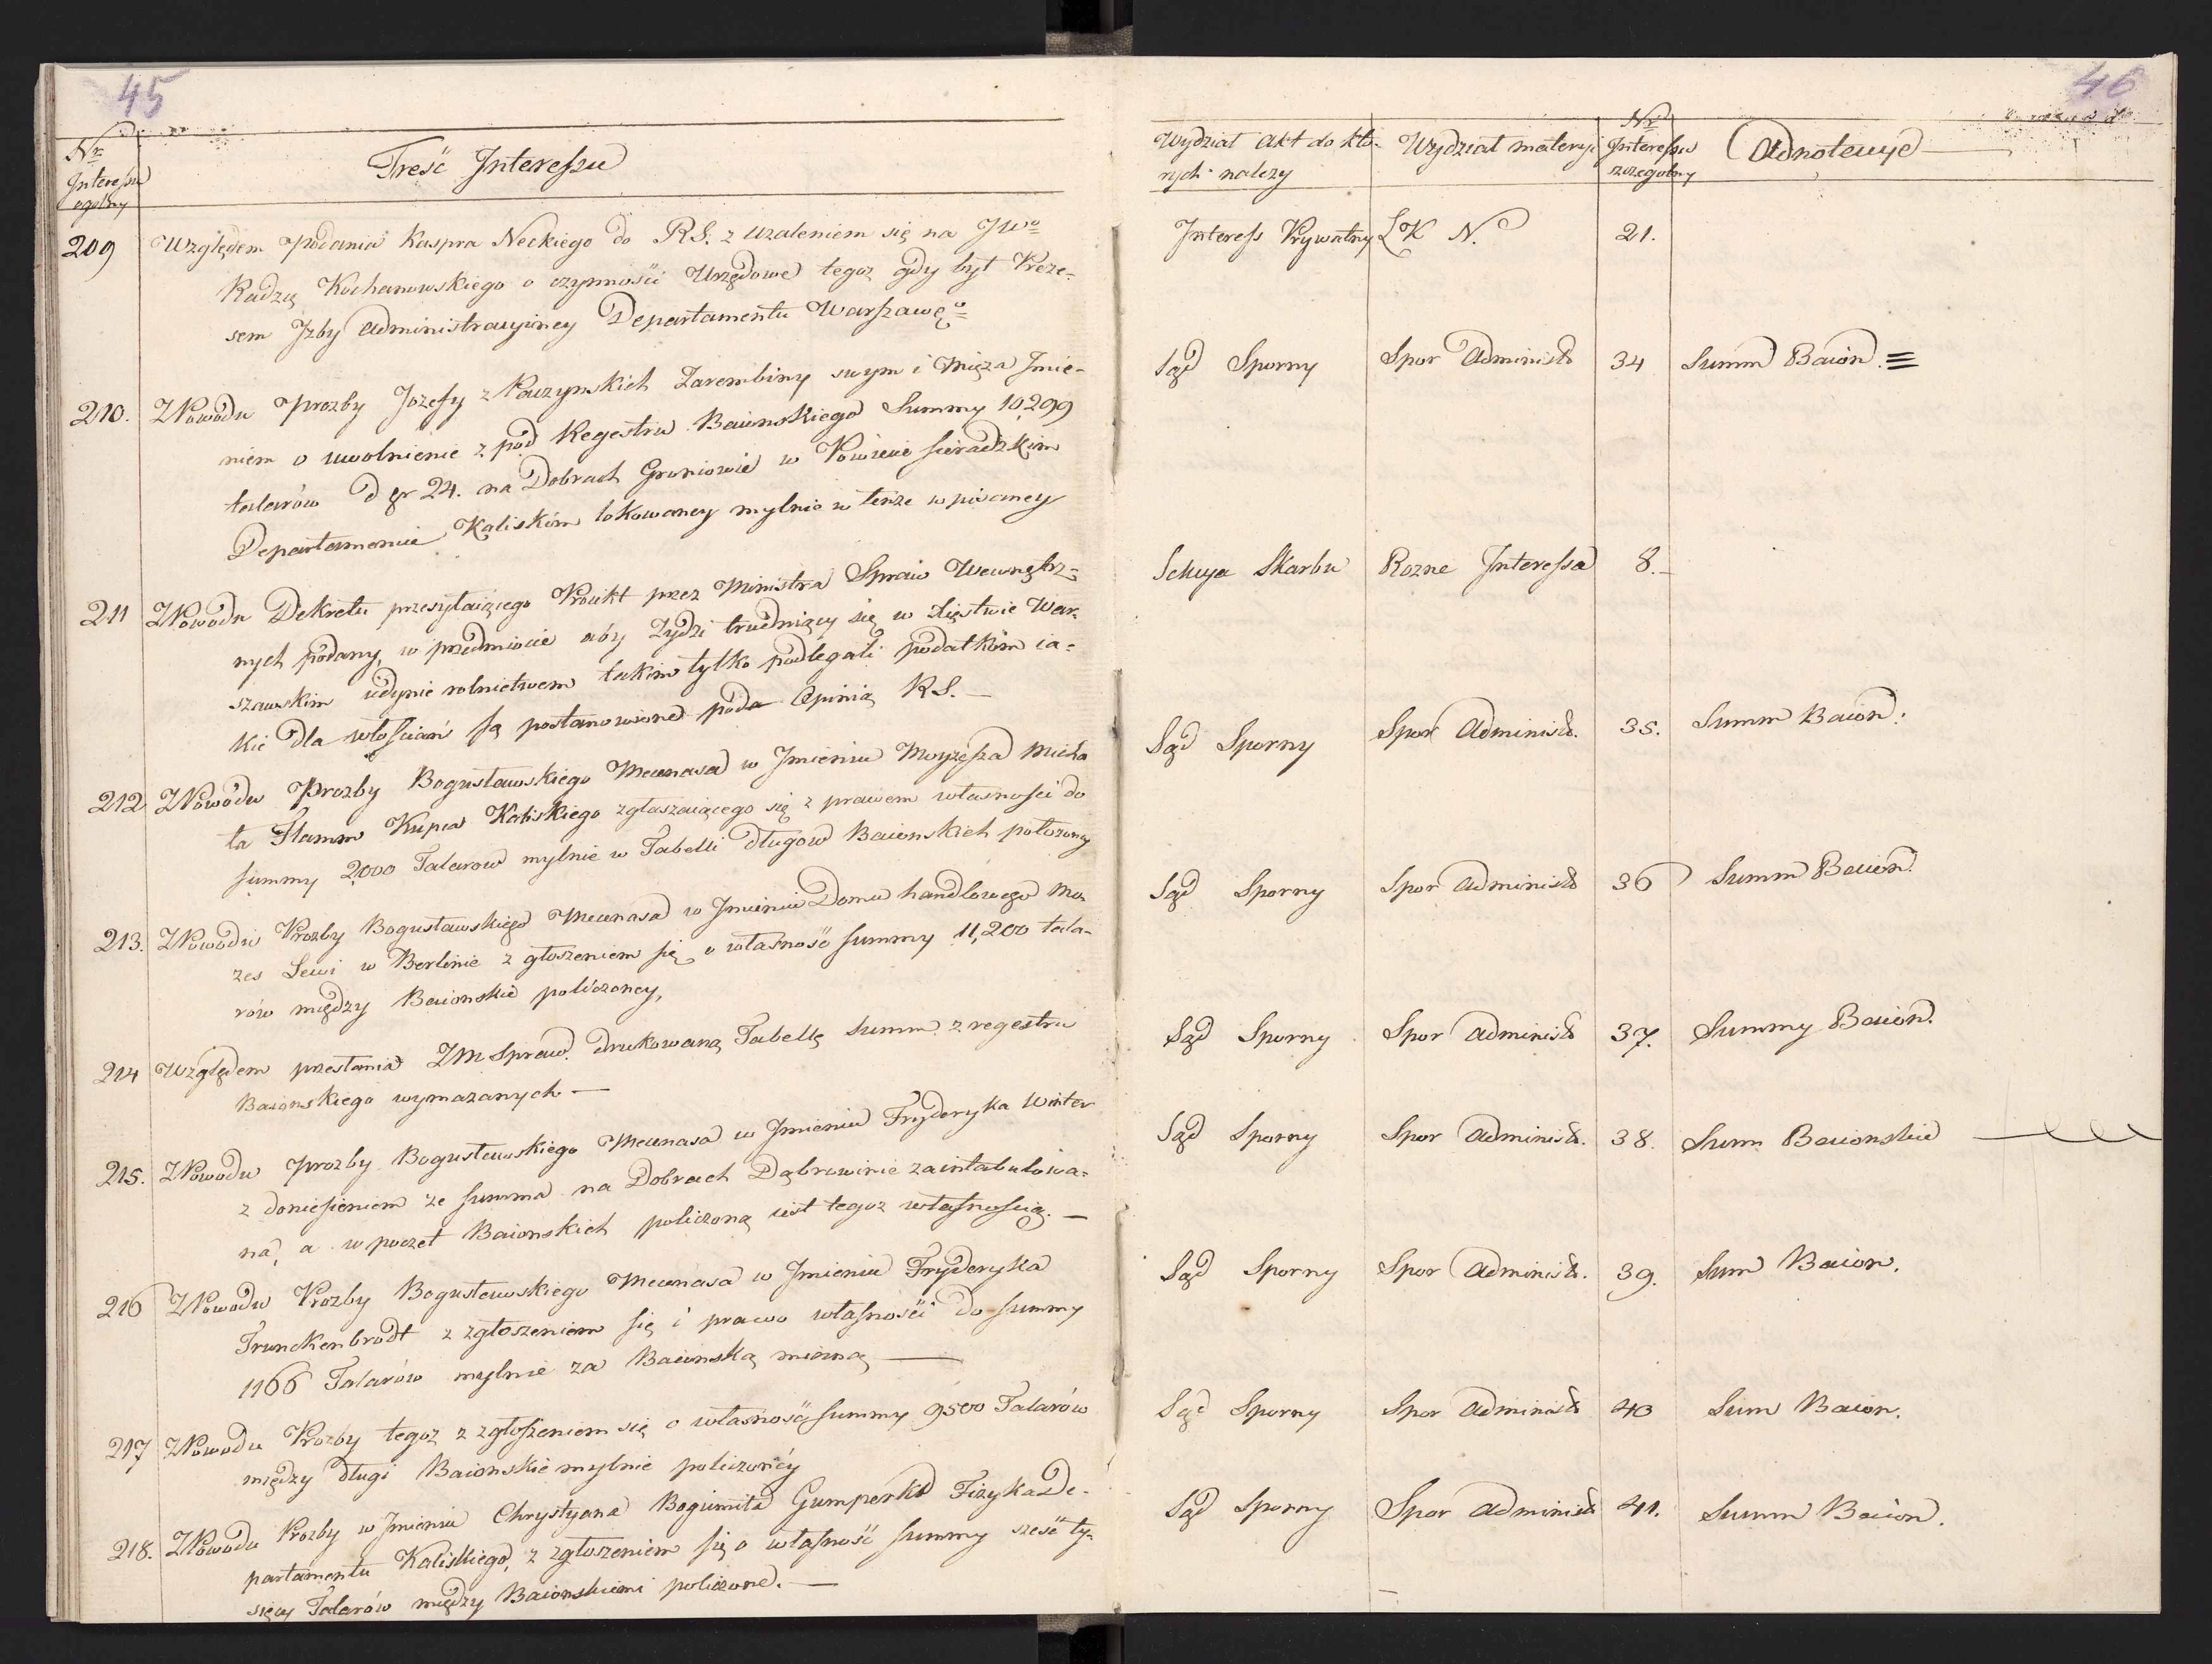 45
Nr
Interessu
ogolny
Treść Interessu
209 Względem podania Kaspra Neckiego do RS. z uzaleniem się na JWo
Radzę Kochanowskiego o czynności Urzędowe tegoz gdy był Preze-
sem Jzby administracyiney Departamentu Warszawgo
210. Z Powodu prozby Jozefy z Paczynskich Zarembiny swym i męza Jmie-
niem o uwolnienie z pod Regestru Baionskiego Summy 10,299
talarów d gr 24. na Dobrach Groniowie w Powiecie sieradzkim
Departamencie Kaliskim lokowaney mylnie w tenze wpisaney
211 Z Powodu Dekretu przesyłaiącego Proiekt przez Ministra Spraw Wewnętrz-
nych podany, w przedmiocie aby Zydzi trudniący się w Xięstwie War-
szawskim iedynie rolnictwem takim tylko podlegali podatkom ia-
kie dla włościan są postanowione poda Opinią RS. —
212 Z Powodu Prozby Bogusławskiego Mecenasa w Jmieniu Moyzesza Micha
ła Flamm Kupca Kaliskiego zgłaszaiącego się z prawem własności do
summy 2,000 Talarow mylnie w Tabelli długow Baionskich położoney
213. Z Powodu Prozby Bogusławskiego Mecenasa w Jmieniu Domu handlowego Mo-
zes Lewi w Berlinie z głoszeniem się o własność summy 11,200 tala-
rów między Baionskie policzoney,
214 Względem przesłania ZM Spraw. drukowaną Tabellę summ z regestru
Baionskiego wymazanych —
215. Z Powodu prozby Bogusławskiego Mecenasa w Jmieniu Fryderyka Winter
z doniesieniem ze summa na Dobrach Dąbrowinie zaintabulowa-
na, a w poczet Baionskich policzoną iest tegoz własnością. —
216 Z Powodu Prozby Bogusławskiego Mecenasa w Jmieniu Fryderyka
Trunckenbrodt z zgłoszeniem się i prawo własności do summy
1166 Talarów mylnie za Baionską mianą —
217 Z Powodu Prozby tegoz z zgłoszeniem się o własność summy 9500 Talarów
między długi Baionskie mylnie policzoney
218. Z Powodu Prozby w Jmieniu Chrystyana Bogumiła Gumperta Fizyka De-
partamentu Kaliskiego, z zgłoszeniem się o własność summy sześć ty-
sięcy Talarów między Baionskiemi policzone. —
46
Wydział Akt do któ-
rych należy
Wydział materyi
Nr
Interessu
szczegolny
Adnotacye
Interess Prywatny LK N. 21.
Sąd Sporny Spor Administr 34 Summ Baion.
Sekcya Skarbu Rozne Interessa 8. —
Sąd Sporny Spor Administr. 35. Summ Baion:
Sąd Sporny Spor Administr 36 Summ Baion.
Sąd Sporny Spor Administr 37. Summy Baion.
Sąd Sporny Spor Administr. 38. Sum Baionskie
Sąd Sporny Spor Administr. 39. Sum Baion.
Sąd Sporny Spor Administr 40 Sum Baion.
Sąd Sporny Spor Administr 41. Summ Baion.